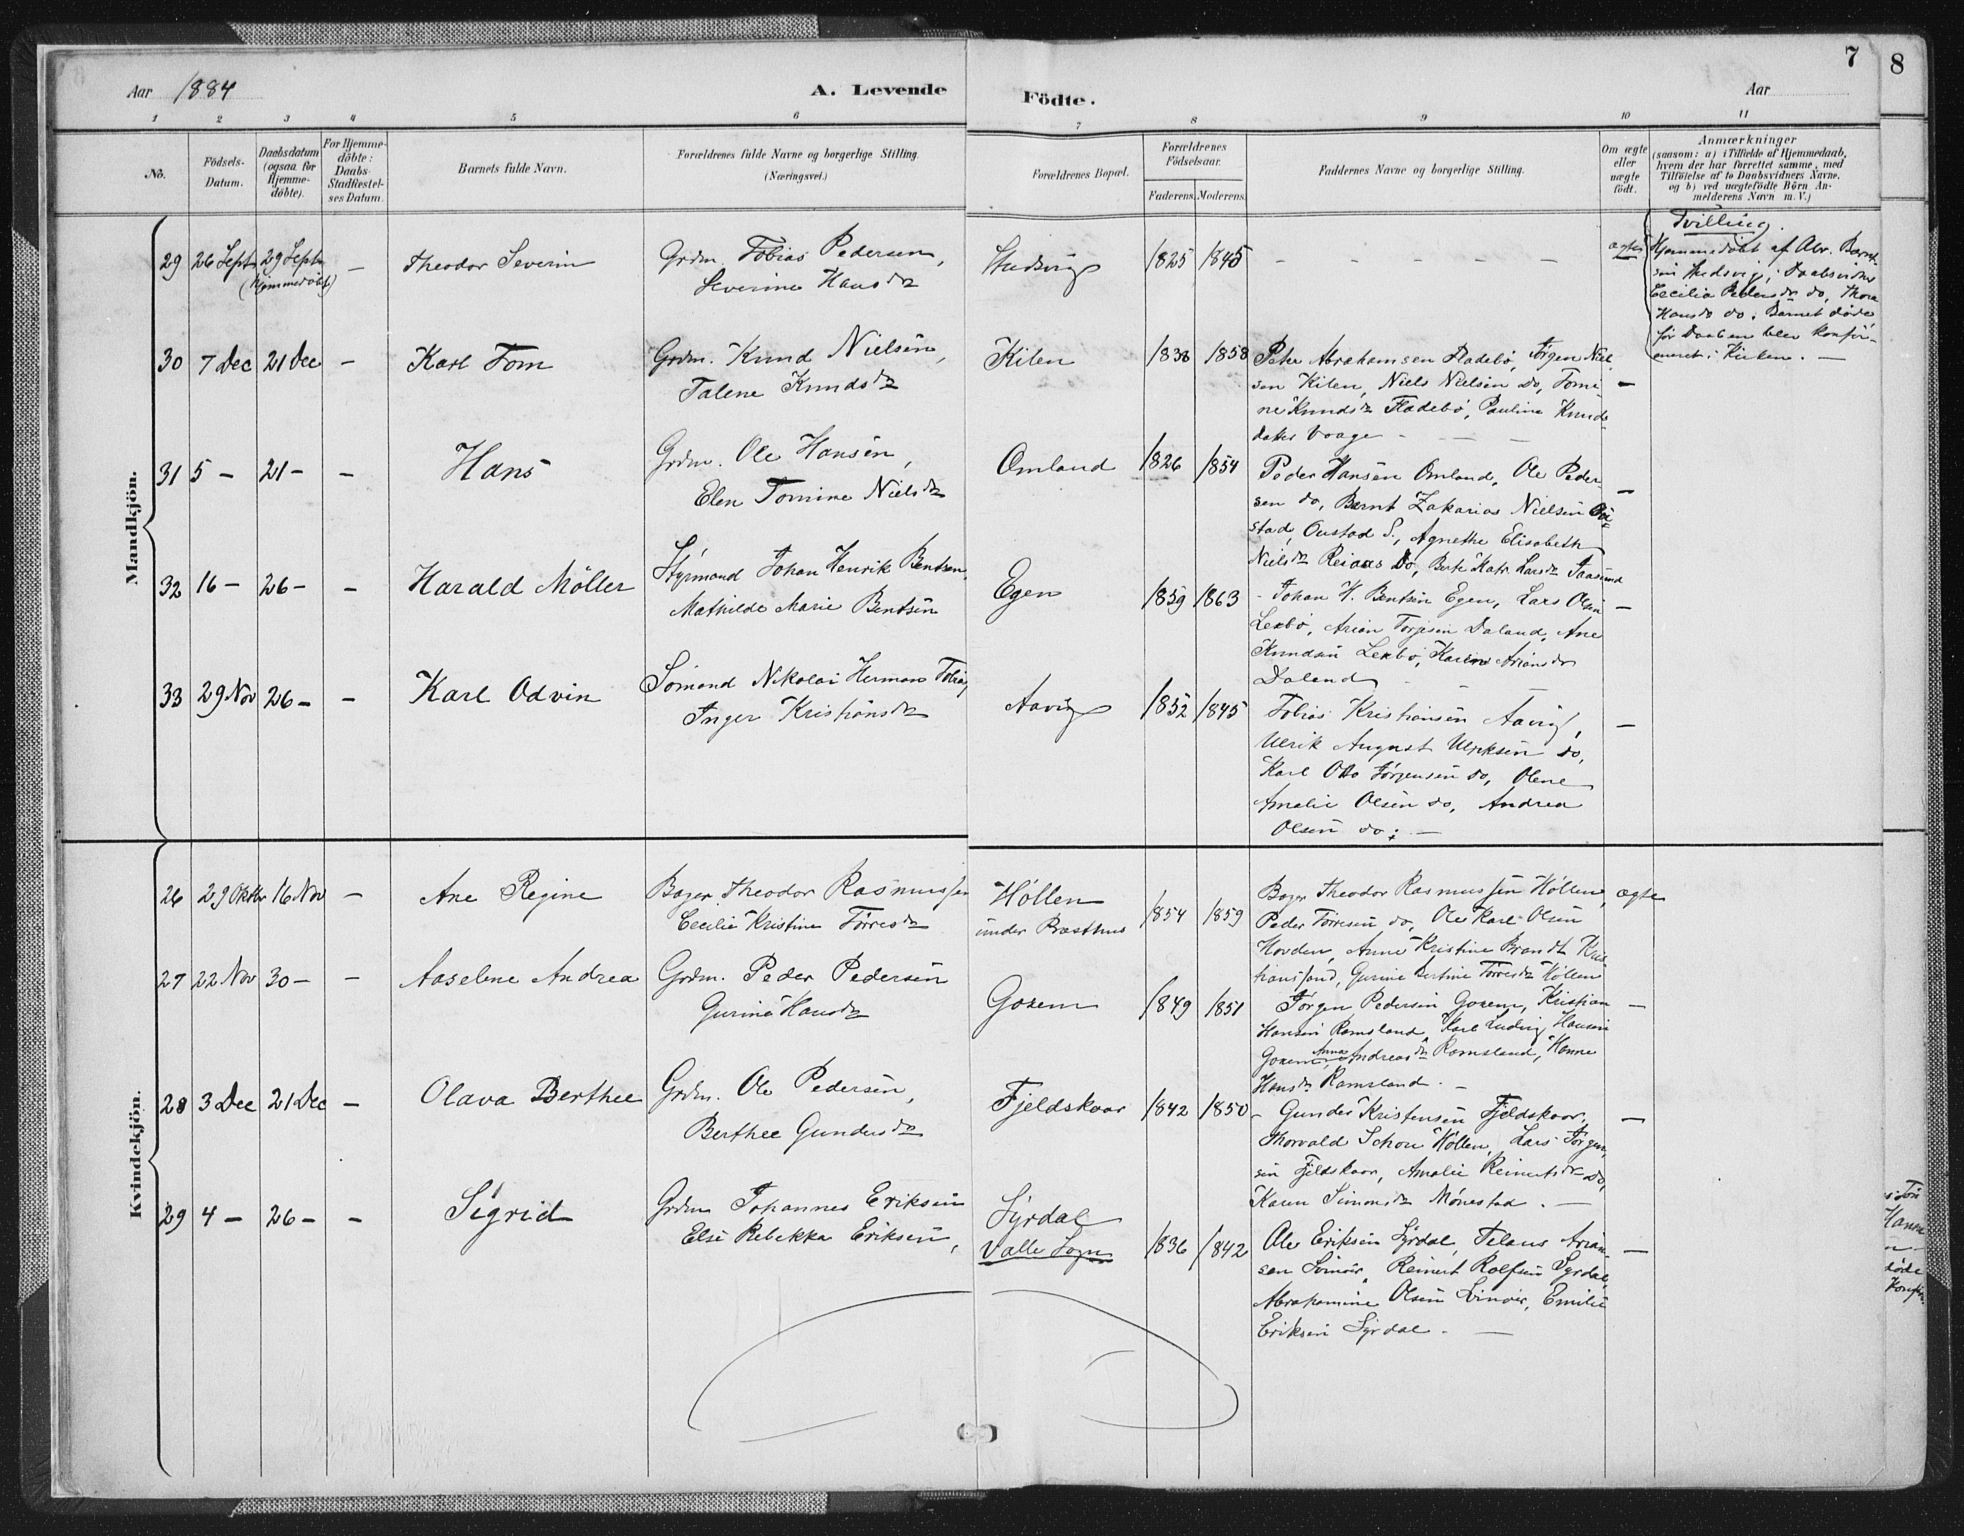 7
8
Aar 1884
A. Levende
Födte.
Aar
1 2 3 4 5 6 7 8 9 10 11
No.
Födsels-
Datum.
Daabsdatum
(ogsaa for
Hjemme-
döbte).
For Hjemme-
döbte:
Daabs-
Stadfæstel-
ses Datum.
Barnets fulde Navn.
Forældrenes fulde Navne og borgerlige Stilling.
(Næringsvei.)
Forældrenes Bopæl.
Forældrenes
Födselsaar.
Faderens. Moderens.
Faddernes Navne og borgerlige Stilling.
Om ægte
eller
uægte
födt.
Anmærkninger
(saasom: a) i Tilfælde af Hjemmedaab,
hvem der har forrettet samme, med
Tilföielse af to Daabsvidners Navne,
og b) ved uægtefödte Börn An-
melderens Navn m. V.)
Mandkjön.
29 26 Sept 29 Sept — Theodor Severin Grdm. Tobias Pedersen, 1825 1845 — — — — — ægte
(Hjemmedöbt)
Severine Hansdr
Tvilling.
Hjemmedöbt af Abr. Bernt-
sen ; Daabsvidner
Cecilia Pedersdr do, Thora
Hansdr do. Barnet döde
för Daaben blev konfir-
meret i Kirken. —
30 7 Dec 21 Dec — Karl Tom Grdm. Knud Nielsen, Kilen 1838 1858 Peter Abrahamsen Fladebö, Jörgen Niel-
Talene Knudsdr
sen Kilen, Niels Nielsen do, Tomi- —
ne Knudsdr Fladebö, Pauline Knuds-
datter Vaage — — —
31 5 — 21 — — Hans Grdm. Ole Hansen, Omland 1826 1854 Peder Hansen Omland, Ole Peder- —
Elen Tomine Nielsdr
sen do, Bernt Zakarias Nielsen
stad, S., Agnethe Elisabeth
Nielsdr do, Berte Katr. Larsdr
32 16 — 26 — — Harald Möller Styrmand Johan Henrik Bentsen, Egen 1859 1863 Johan H. Bentsen Egen, Lars Olsen —
Mathilde Marie Bentsen
Lexbö, Arian Torjesen Daland, Ane
Knudsen Lexbö, Karine Ariansdr
Daland
33 29 Nov 26 — — Karl Odvin Sömand Nikolai Herman Tobias, Aavig 1852 1845 Tobias Kristiansen Aavig, —
Inger Kristiansdr
Ulrik August Ulriksen do,
Karl Otto Jörgensen do, Olene
Amalie Olsen do, Andrea
Olsen do. —
Kvindekjön.
26 29 Oktbr 16 Nov — Ane Regine Bager Theodor Rasmussen Höllen 1854 1859 Bager Theodor Rasmussen Höllen, ægte
Cecilie Kristine Törresdr under Præsthus
Peder Törresen do, Ole Karl Olsen
Hovden, Anne Kristine Brandt Kris-
tianssand, Gurine Bertine Törresdr Höllen
27 22 Nov 30 — — Aaselene Andrea Grdm. Peder Pedersen Goxem 1849 1851 Jörgen Pedersen Goxem, Kristian —
Gurine Hansdr
Hansen Ramsland, Karl Ludvig Hansen
Goxem, Anna Andreasdr Ramsland, Hanne
Hansdr Ramsland. —
28 3 Dec 21 Dec — Olava Berthee Grdm. Ole Pedersen, Fjeldskaar 1842 1850 Gunder Kristensen Fjeldskaar, —
Berthee Gundersdr
Thorvald Schou Höllen, Lars Jörgen-
sen Fjeldskaar, Amalie Reinertsdr do,
Karen Simonsdr Mönestad. —
29 4 — 26 — — Sigrid Grdm Johannes Eriksen Syrdal
Else Rebekka Eriksen, Valle Sogn 1836 1842 Ole Eriksen Syrdal, Arian- —
sen , Reinert Rolfsen Syrdal,
Abrahamine Olsen , Emilie
Eriksen Syrdal. —
Hanne
döde